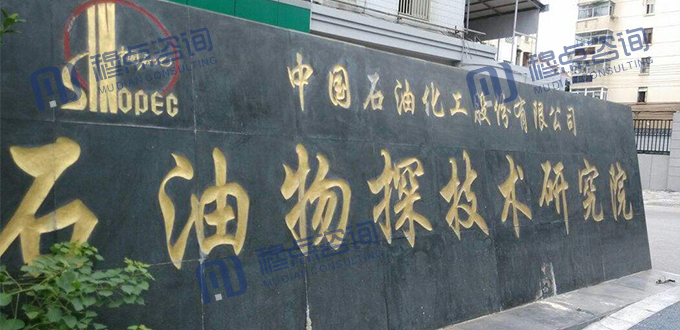 SINOPEC
中国石油化工股份有限公司
石油物探技术研究院
穆点咨询
MUDIAN CONSULTING
穆点咨询
MUDIAN CONSULTING
穆点咨询
MUDIAN CONSULTING